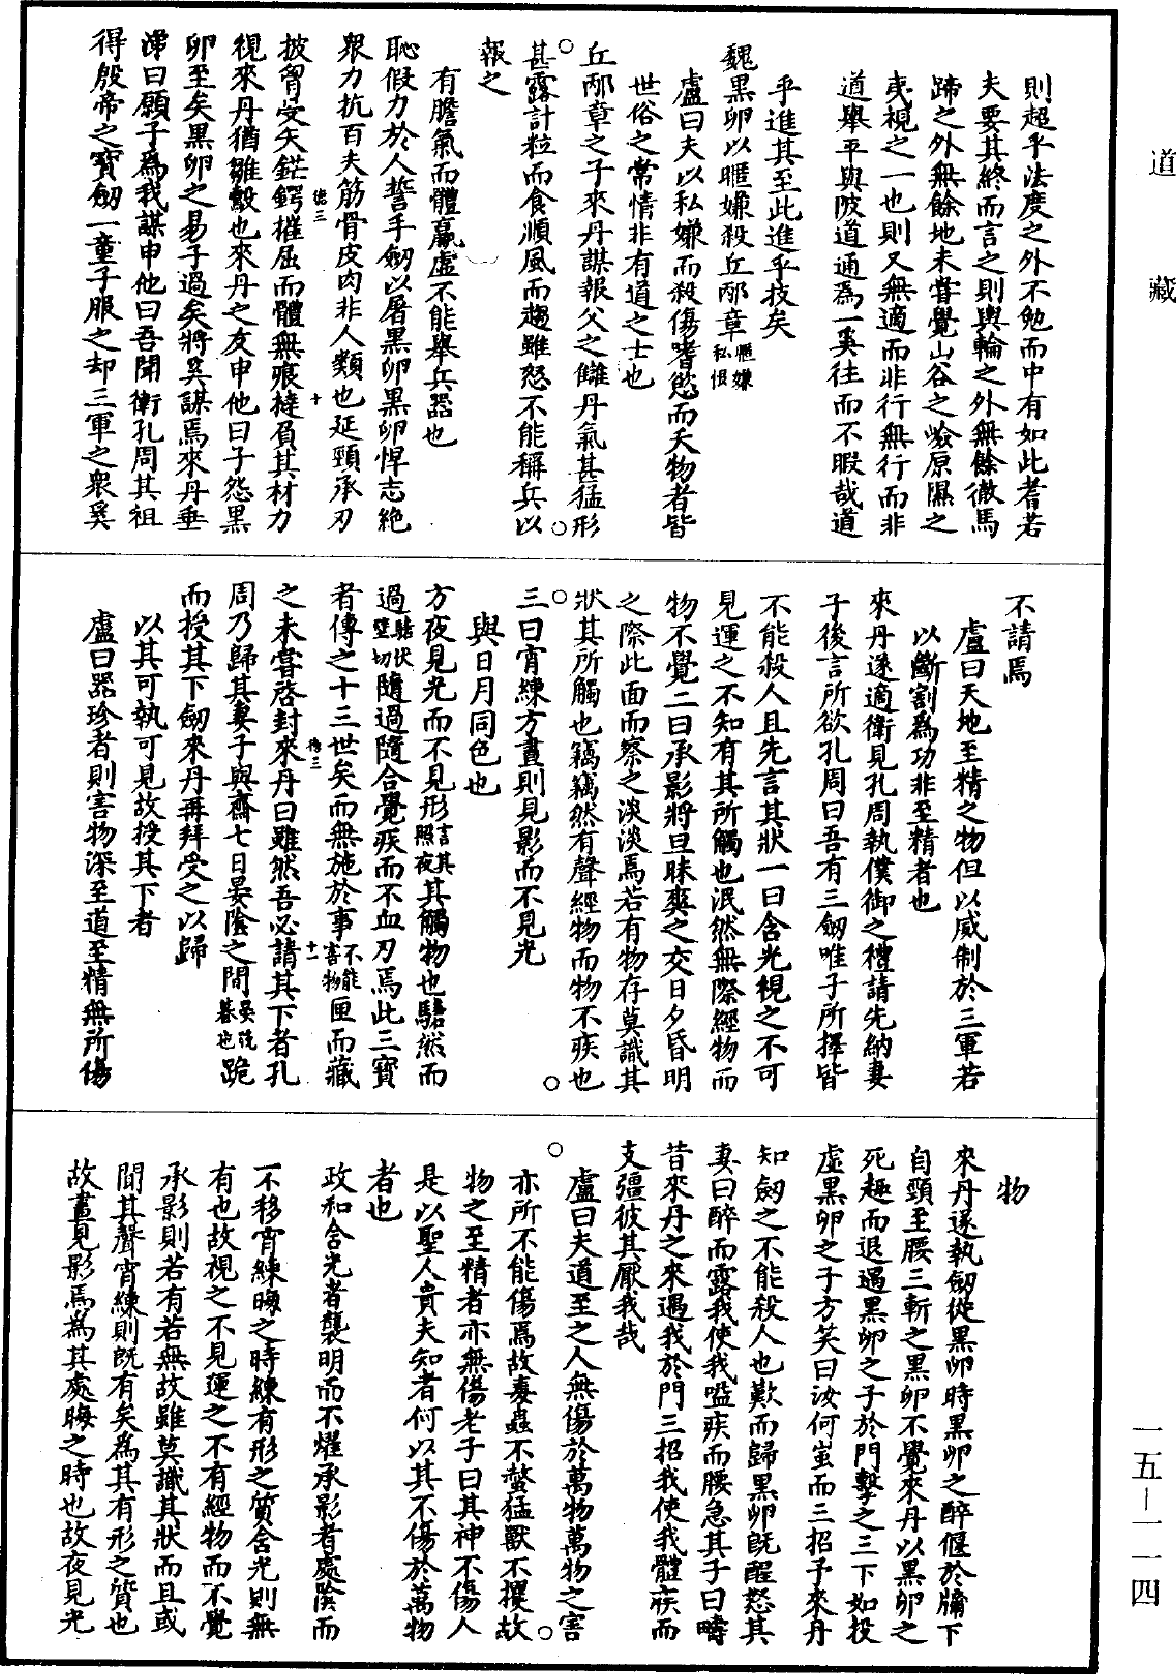 道藏
則超乎法度之外不勉而中有如此者若
夫要其終而言之則輿輪之外無餘徹馬
蹄之外無餘地未嘗覺山谷之嶮原隰之
夷視之一也則又無適而非行無行而非
道舉平與陂道通為一奚往而不暇哉道
乎進其至此進乎技矣
魏黑卵以暱嫌殺丘邴章暱嫌私恨
盧曰夫以私嫌而殺傷嗜慾而夭物者皆
世俗之常情非有道之士也
丘邴章之子來丹謀報父之讎丹氣甚猛形
甚露計粒而食順風而趨雖怒不能稱兵以
報之
有膽氣而體羸虛不能舉兵器也
恥假力於人誓手劒以屠黑卵黑卵悍志絕
眾力抗百夫筋骨皮肉非人類也延頸承刃
披胷受矢鋩鍔摧屈而體無痕撻負其材力
視來丹猶雛鷇也來丹之友申他曰子怨黑
卵至矣黑卵之易子過矣將奚謀焉來丹垂
涕曰願子為我謀申他曰吾聞衛孔周其祖
得殷帝之寶劒一童子服之却三軍之眾奚
不請焉
盧曰天地至精之物但以威制於三軍若
以斷割為功非至精者也
來丹遂適衛見孔周執僕御之禮請先納妻
子後言所欲孔周曰吾有三劒唯子所擇皆
不能殺人且先言其狀一曰含光視之不可
見運之不知有其所觸也泯然無際經物而
物不覺二曰承影將旦昧爽之交日夕昏明
之際北面而察之淡淡焉若有物存莫識其
狀其所觸也竊竊然有聲經物而物不疾也
三曰宵練方晝則見影而不見光
與日月同色也
方夜見光而不見形言其照夜其觸物也騞然而
過騞伏璧切隨過隨合覺疾而不血刃焉此三寶
者傳之十三世矣而無施於事不能害物匣而藏
之未嘗啓封來丹曰雖然吾必請其下者孔
周乃歸其妻子與齋七日晏陰之間晏晚暮也跪
而授其下劒來丹再拜受之以歸
以其可執可見故授其下者
盧曰器珍者則害物深至道至精無所傷
物
來丹遂執劒從黑卵時黑卵之醉偃於牖下
自頸至腰三斬之黑卵不覺來丹以黑卵之
死趣而退遇黑卵之子於門擊之三下如投
虛黑卵之子方笑曰汝何蚩而三招子來丹
知劒之不能殺人也歎而歸黑卵既醒怒其
妻曰醉而露我使我嗌疾而腰急其子曰疇
昔來丹之來遇我於門三招我使我體疾而
支彊彼其厭我哉
盧曰夫道至之人無傷於萬物萬物之害
亦所不能傷焉故毒蟲不螫猛獸不攫故
物之至精者亦無傷老子曰其神不傷人
是以聖人貴夫知者何以其不傷於萬物
者也
政和含光者襲明而不燿承影者處陰而
不移宵練晦之時練有形之質含光則無
有也故視之不見運之不有經物而不覺
承影則若有若無故雖莫識其狀而且或
聞其聲宵練則既有矣為其有形之質也
故晝見影焉為其處晦之時也故夜見光
一五—一一四